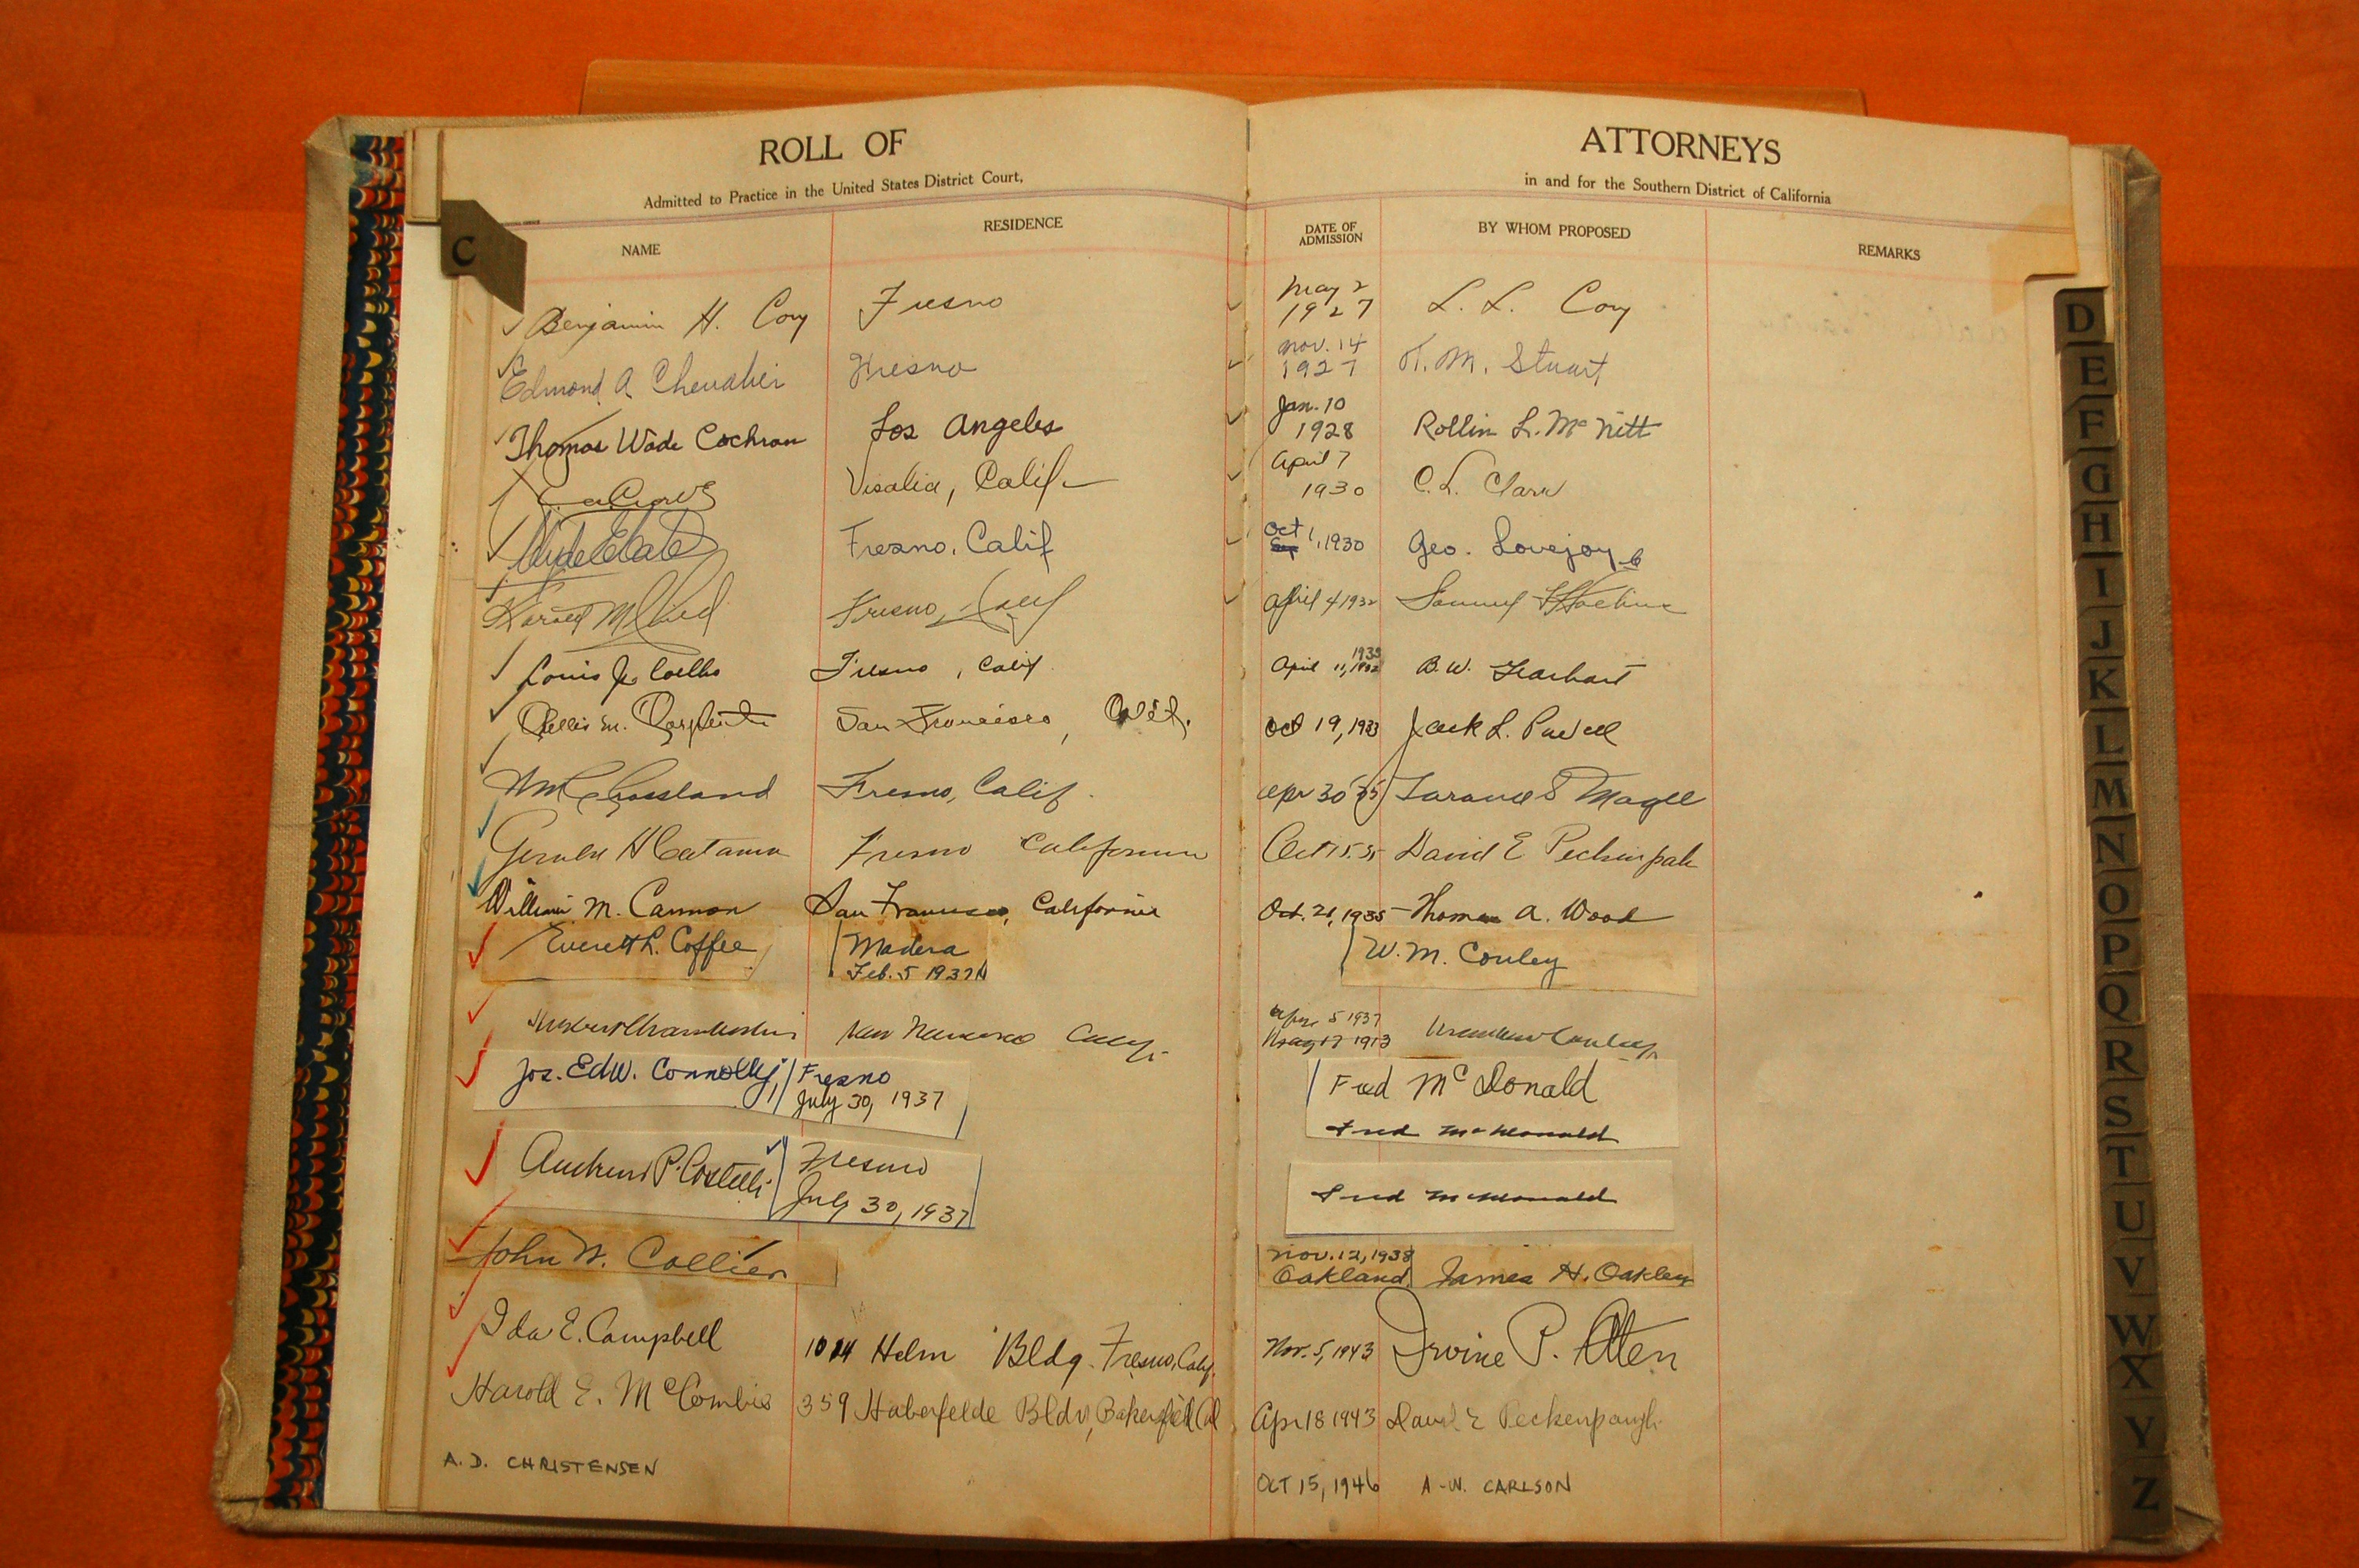 ROLL OF ATTORNEYS
Admitted to Practice in the United States District Court, in and for the Southern District of California
C
NAME RESIDENCE DATE OF ADMISSION BY WHOM PROPOSED REMARKS
Benjamin H. Cory Fresno May 2 1927 L. L. Cory
Edmond A. Chevalier Fresno Nov. 14 1927 T. M. Stuart
Thomas Wade Cochran Los Angeles Jan. 10 1928 Rollin L. McNitt
Visalia, Calif April 7 1930 C. L. Clark
Fresno, Calif Oct 1, 1930 Geo. Lovejoy
Fresno, Calif April 4 1932 Samuel
Louis J. Coelho Fresno, Calif. April 11, 1933 B. W. Gearhart
San Francisco, Calif. Oct 19, 1933 Jack L. Powell
Wm C Crossland Fresno, Calif. Apr 30 35 Magee
H Fresno California Oct 15. 35 David E Peckinpah
William M. Cannon San Francisco, California Oct. 21, 1935 Thomas A. Wood
Everett L. Coffee Madera W. M. Conley
Feb. 5 1937
San Francisco Calif. Apr. 5 1937 Conley
May 17 1913
Jos. Edw. Connolly, Fresno Fred McDonald
July 30, 1937 Fred McDonald
P. Fresno Fred McDonald
July 30, 1937
John W. Collier Nov. 12, 1938
Oakland James H. Oakley
Ida E. Campbell 1014 Helm Bldg. Fresno, Calif. Nov. 5, 1943 Irvine P. Aten
Harold E. McCombs 359 Haberfelde Bldg, Bakersfield Cal Apr 18 1943 David E Peckenpaugh
A. D. CHRISTENSEN OCT 15, 1946 A. W. CARLSON
D
E
F
G
H
I
J
K
L
M
N
O
P
Q
R
S
T
U
V
W
X
Y
Z